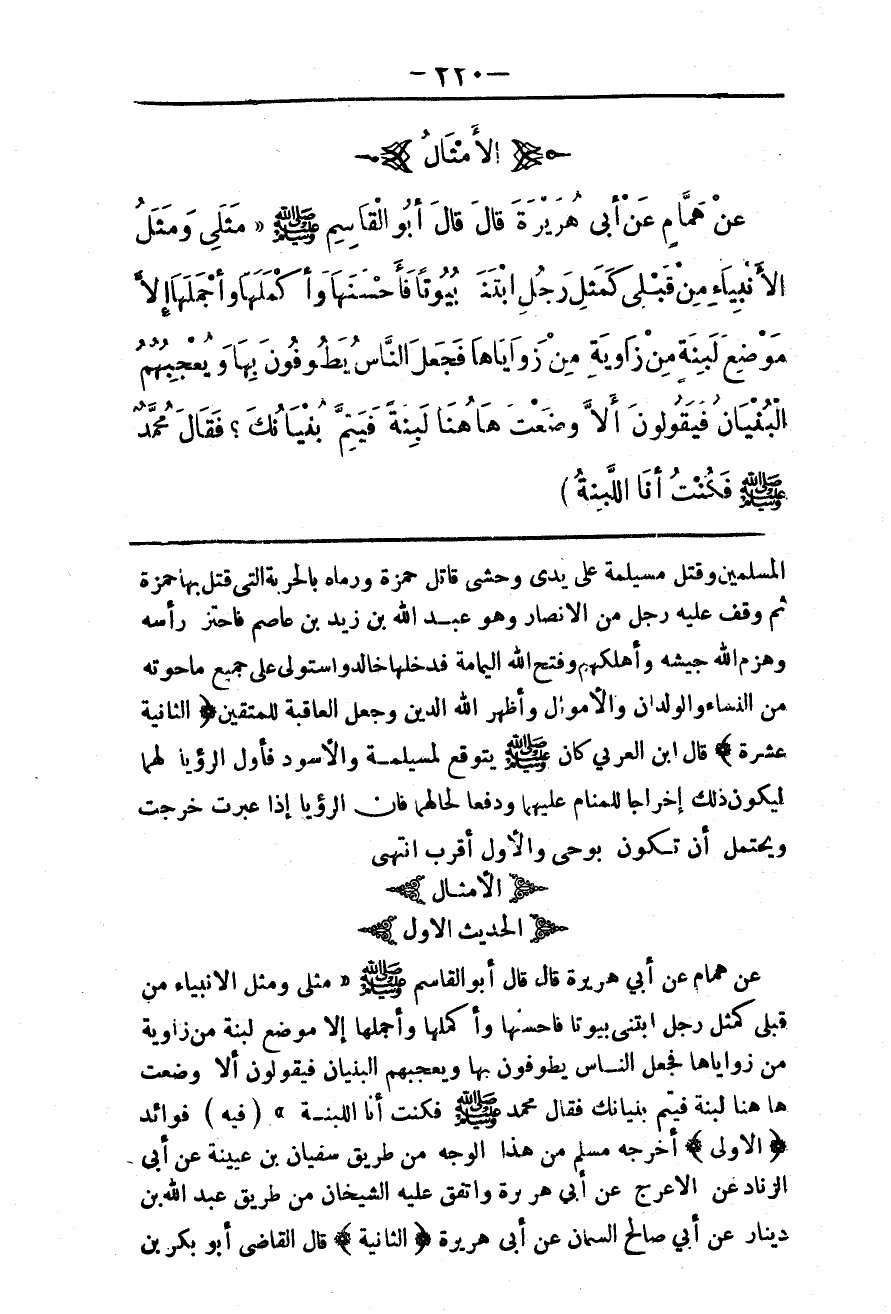 — ٢٢٠ —
الأَمْثَالُ
عَنْ هَمَّامٍ عَنْ أَبِى هُرَيْرَةَ قَالَ قَالَ أَبُو الْقَاسِمِ ﷺ « مَثَلِى وَمَثَلُ
الأَنْبِيَاءِ مِنْ قَبْلِى كَمَثَلِ رَجُلٍ ابْتَنَى بُيُوتًا فَأَحْسَنَهَا وَأَكْمَلَهَا وَأَجْمَلَهَا إِلاَّ
مَوْضِعَ لَبِنَةٍ مِنْ زَاوِيَةٍ مِنْ زَوَايَاهَا فَجَعَلَ النَّاسُ يَطُوفُونَ بِهَا وَيُعْجِبُهُمُ
الْبُنْيَانُ فَيَقُولُونَ أَلاَّ وَضَعْتَ هَا هُنَا لَبِنَةً فَيَتِمَّ بُنْيَانُكَ ؟ فَقَالَ مُحَمَّدٌ
ﷺ فَكُنْتُ أَنَا اللَّبِنَةُ )
المسلمين وقتل مسيلمة على يدى وحشى قاتل حمزة ورماه بالحربة التى قتل بها حمزة
ثم وقف عليه رجل من الانصار وهو عبد الله بن زيد بن عاصم فاحتز رأسه
وهزم الله جيشه وأهلكهم وفتح الله اليمامة فدخلها خالد واستولى على جميع ماحوته
من النساء والولدان والأموال وأظهر الله الدين وجعل العاقبة للمتقين ﴿ الثانية
عشرة ﴾ قال ابن العربي كان ﷺ يتوقع لمسيلمة والأسود فأول الرؤيا لهما
ليكون ذلك إخراجا للمنام عليهما ودفعا لحالهما فان الرؤيا إذا عبرت خرجت
ويحتمل أن تكون بوحى والأول أقرب انتهى
الأمثال
الحديث الاول
عن همام عن أبي هريرة قال قال أبو القاسم ﷺ « مثلى ومثل الانبياء من
قبلى كمثل رجل ابتنى بيوتا فاحسنها وأكملها وأجملها إلا موضع لبنة من زاوية
من زواياها فجعل الناس يطوفون بها ويعجبهم البنيان فيقولون ألا وضعت
ها هنا لبنة فيتم بنيانك فقال محمد ﷺ فكنت أنا اللبنة » ( فيه ) فوائد
﴿ الاولى ﴾ أخرجه مسلم من هذا الوجه من طريق سفيان بن عيينة عن أبى
الزناد عن الاعرج عن أبي هريرة واتفق عليه الشيخان من طريق عبد الله بن
دينار عن أبي صالح السمان عن أبى هريرة ﴿ الثانية ﴾ قال القاضى أبو بكر بن